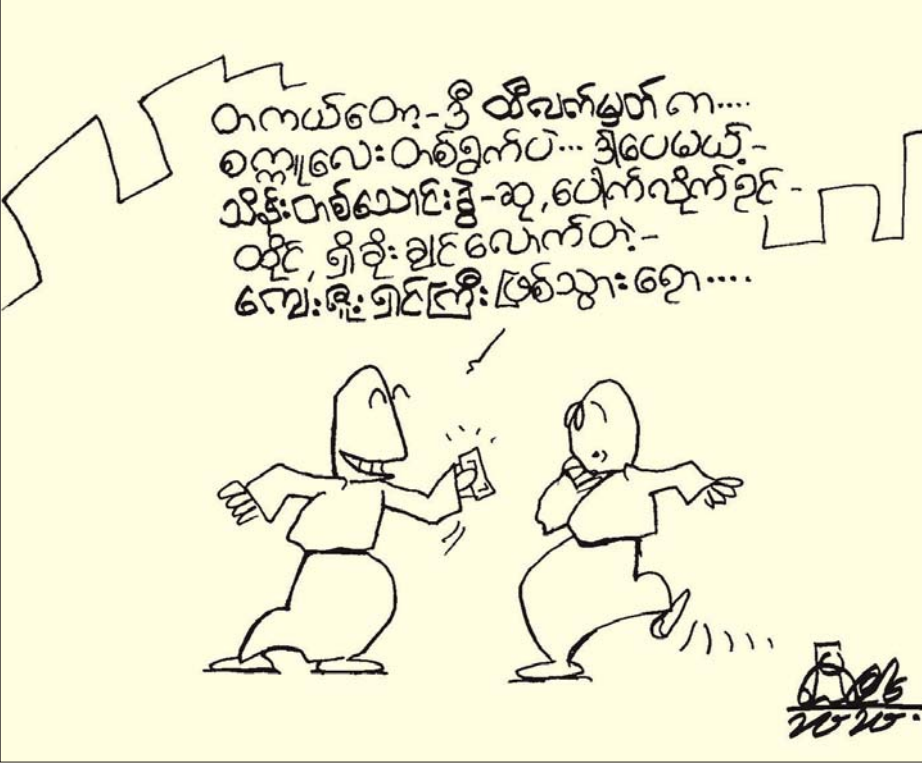 တကယ်တော့-ဒီ ထီလက်မှတ် က....
စက္ကူလေး တစ်ရွက်ပဲ... ဒါပေမယ့်-
သိန်းတစ်သောင်းခွဲ-ဆု, ပေါက်လိုက်ရင်-
ထိုင်, ရှိခိုး ချင်လောက်တဲ့-
ကျေးဇူးရှင်ကြီး ဖြစ်သွားရော....